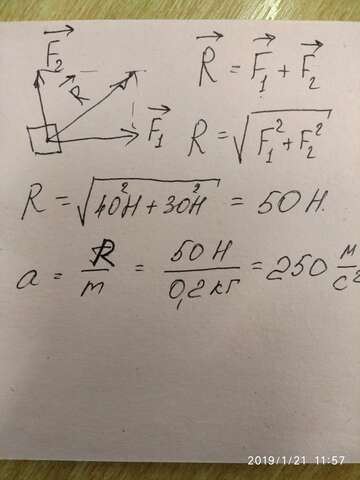 F₂→ R→ F₁→
R→ = F₁→ + F₂→
R = √(F₁² + F₂²)
R = √(40²Н + 30²Н) = 50 Н.
a = R/m = 50 Н/0,2 кг = 250 м/с²
2019/1/21 11:57